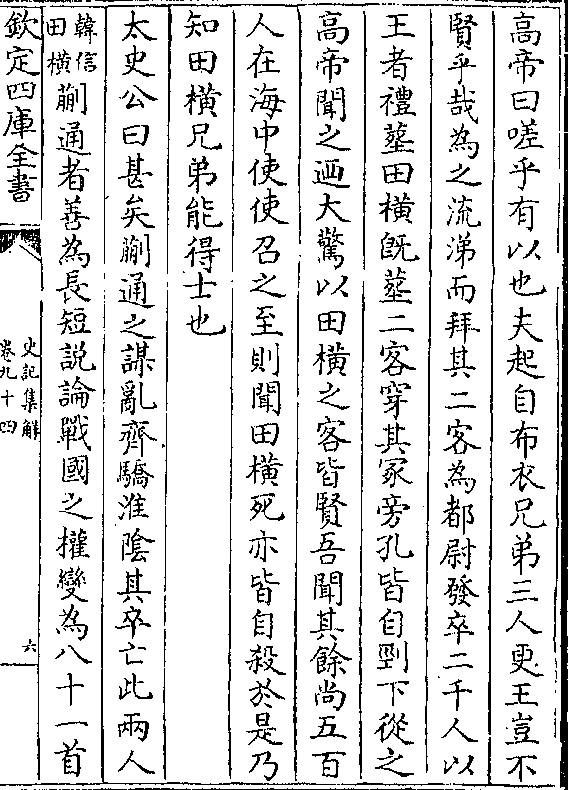 高帝曰嗟乎有以也夫起自布衣兄弟三人更王豈不
賢乎哉為之流涕而拜其二客為都尉發卒二千人以
王者禮塟田橫既塟二客穿其冢旁孔皆自剄下從之
高帝聞之廼大驚以田橫之客皆賢吾聞其餘尚五百
人在海中使使召之至則聞田橫死亦皆自殺於是乃
知田橫兄弟能得士也
太史公曰甚矣蒯通之謀亂齊驕淮陰其卒亡此兩人
韓信
田橫
蒯通者善為長短説論戰國之權變為八十一首
欽定四庫全書
史記集解
卷九十四
六